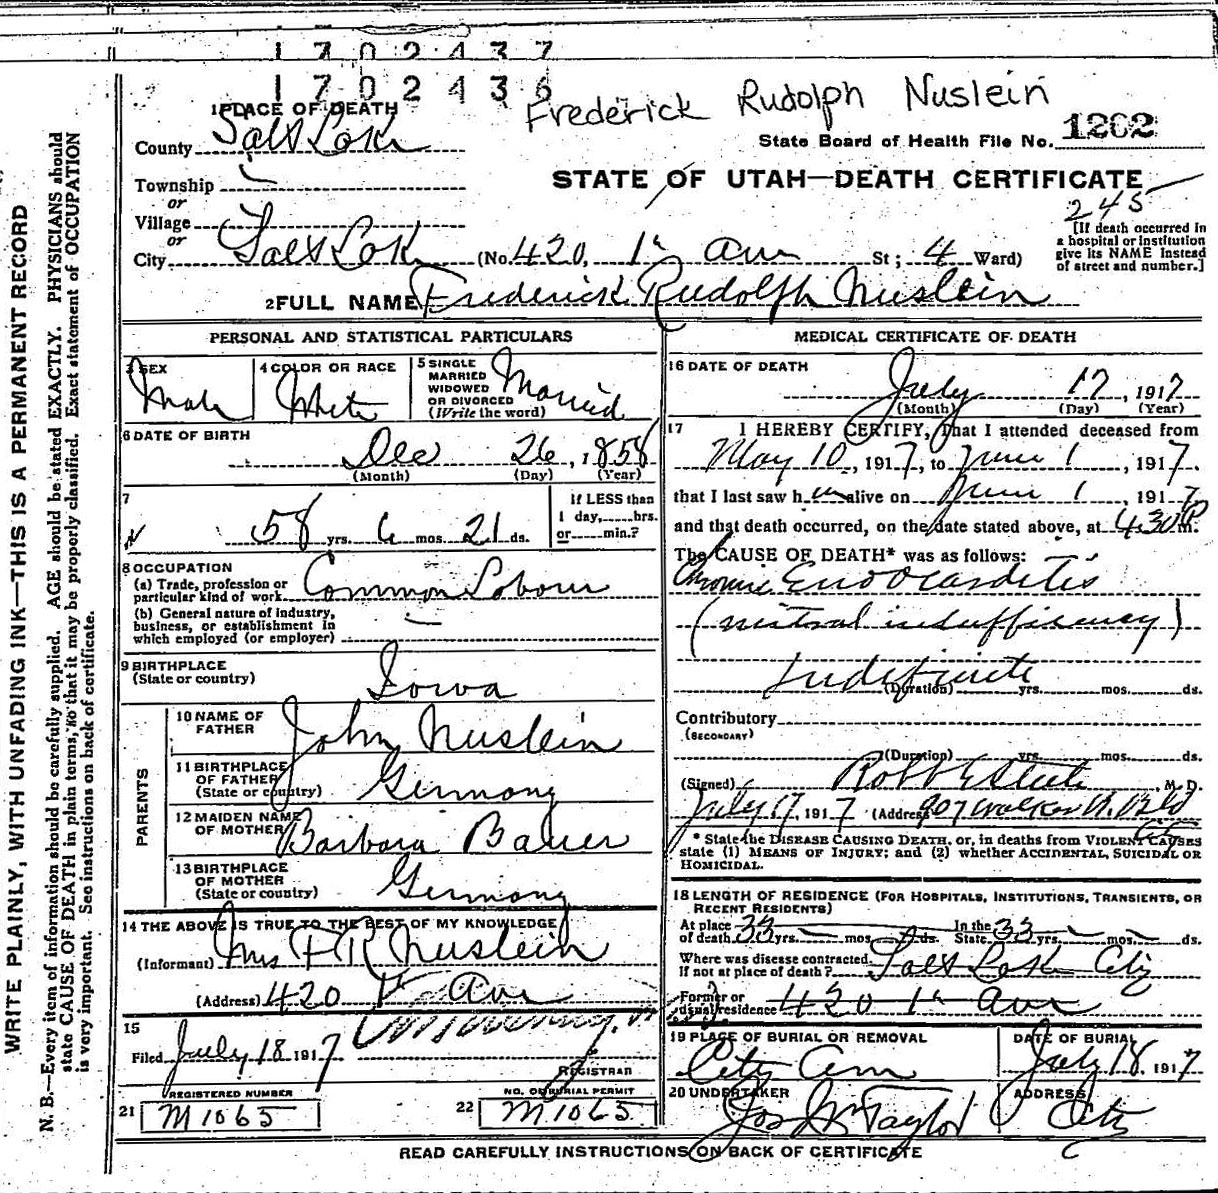 1702437
1702436
Frederick Rudolph Nuslein
1 PLACE OF DEATH
State Board of Health File No. 1202
County Salt Lake
STATE OF UTAH—DEATH CERTIFICATE
Township
or
Village
or
City Salt Lake (No. 420, 1st ave St; 4 Ward)
245
[If death occurred in
a hospital or institution
give its NAME instead
of street and number.]
2 FULL NAME Frederick Rudolph Nuslein
PERSONAL AND STATISTICAL PARTICULARS
3 SEX
Male
4 COLOR OR RACE
White
5 SINGLE
MARRIED
WIDOWED
OR DIVORCED
(Write the word)
Married
6 DATE OF BIRTH
Dec 26, 1858
(Month) (Day) (Year)
7
58 yrs. 6 mos. 21 ds.
If LESS than
1 day,......hrs.
or......min.?
8 OCCUPATION
(a) Trade, profession or
particular kind of work Common Labour
(b) General nature of industry,
business, or establishment in
which employed (or employer)
9 BIRTHPLACE
(State or country)
Iowa
PARENTS
10 NAME OF
FATHER
John Nuslein
11 BIRTHPLACE
OF FATHER
(State or country)
Germany
12 MAIDEN NAME
OF MOTHER
Barbara Bauer
13 BIRTHPLACE
OF MOTHER
(State or country)
Germany
14 THE ABOVE IS TRUE TO THE BEST OF MY KNOWLEDGE
(Informant) Mrs F R Nuslein
(Address) 420 1st Ave
15
Filed July 18 1917
REGISTRAR
REGISTERED NUMBER
21 M 1065
NO. ON BURIAL PERMIT
22 M 1065
MEDICAL CERTIFICATE OF DEATH
16 DATE OF DEATH
July 17, 1917
(Month) (Day) (Year)
17 I HEREBY CERTIFY, that I attended deceased from
May 10, 1917, to June 1, 1917.
that I last saw him alive on June 1, 1917
and that death occurred, on the date stated above, at 4.30 P m.
The CAUSE OF DEATH* was as follows:
Chronic Endocarditis
(mitral insufficiency)
Indefinite
(Duration) yrs. mos. ds.
Contributory
(SECONDARY)
(Duration) yrs. mos. ds.
(Signed) M. D.
July 17, 1917 (Address) 907 Walker B. Bld
City
* State the DISEASE CAUSING DEATH, or, in deaths from VIOLENT CAUSES
state (1) MEANS OF INJURY; and (2) whether ACCIDENTAL, SUICIDAL OR
HOMICIDAL.
18 LENGTH OF RESIDENCE (FOR HOSPITALS, INSTITUTIONS, TRANSIENTS, OR
RECENT RESIDENTS)
At place
of death 33 yrs. mos. ds.
In the
State 33 yrs. mos. ds.
Where was disease contracted
If not at place of death? Salt Lake City
Former or
usual residence 420 1st ave
19 PLACE OF BURIAL OR REMOVAL
City Cem
DATE OF BURIAL
July 18, 1917
20 UNDERTAKER
Jos Wm Taylor
ADDRESS
City
READ CAREFULLY INSTRUCTIONS ON BACK OF CERTIFICATE
WRITE PLAINLY, WITH UNFADING INK—THIS IS A PERMANENT RECORD
N. B.—Every item of information should be carefully supplied. AGE should be stated EXACTLY. PHYSICIANS should
state CAUSE OF DEATH in plain terms, so that it may be properly classified. Exact statement of OCCUPATION
is very important. See instructions on back of certificate.